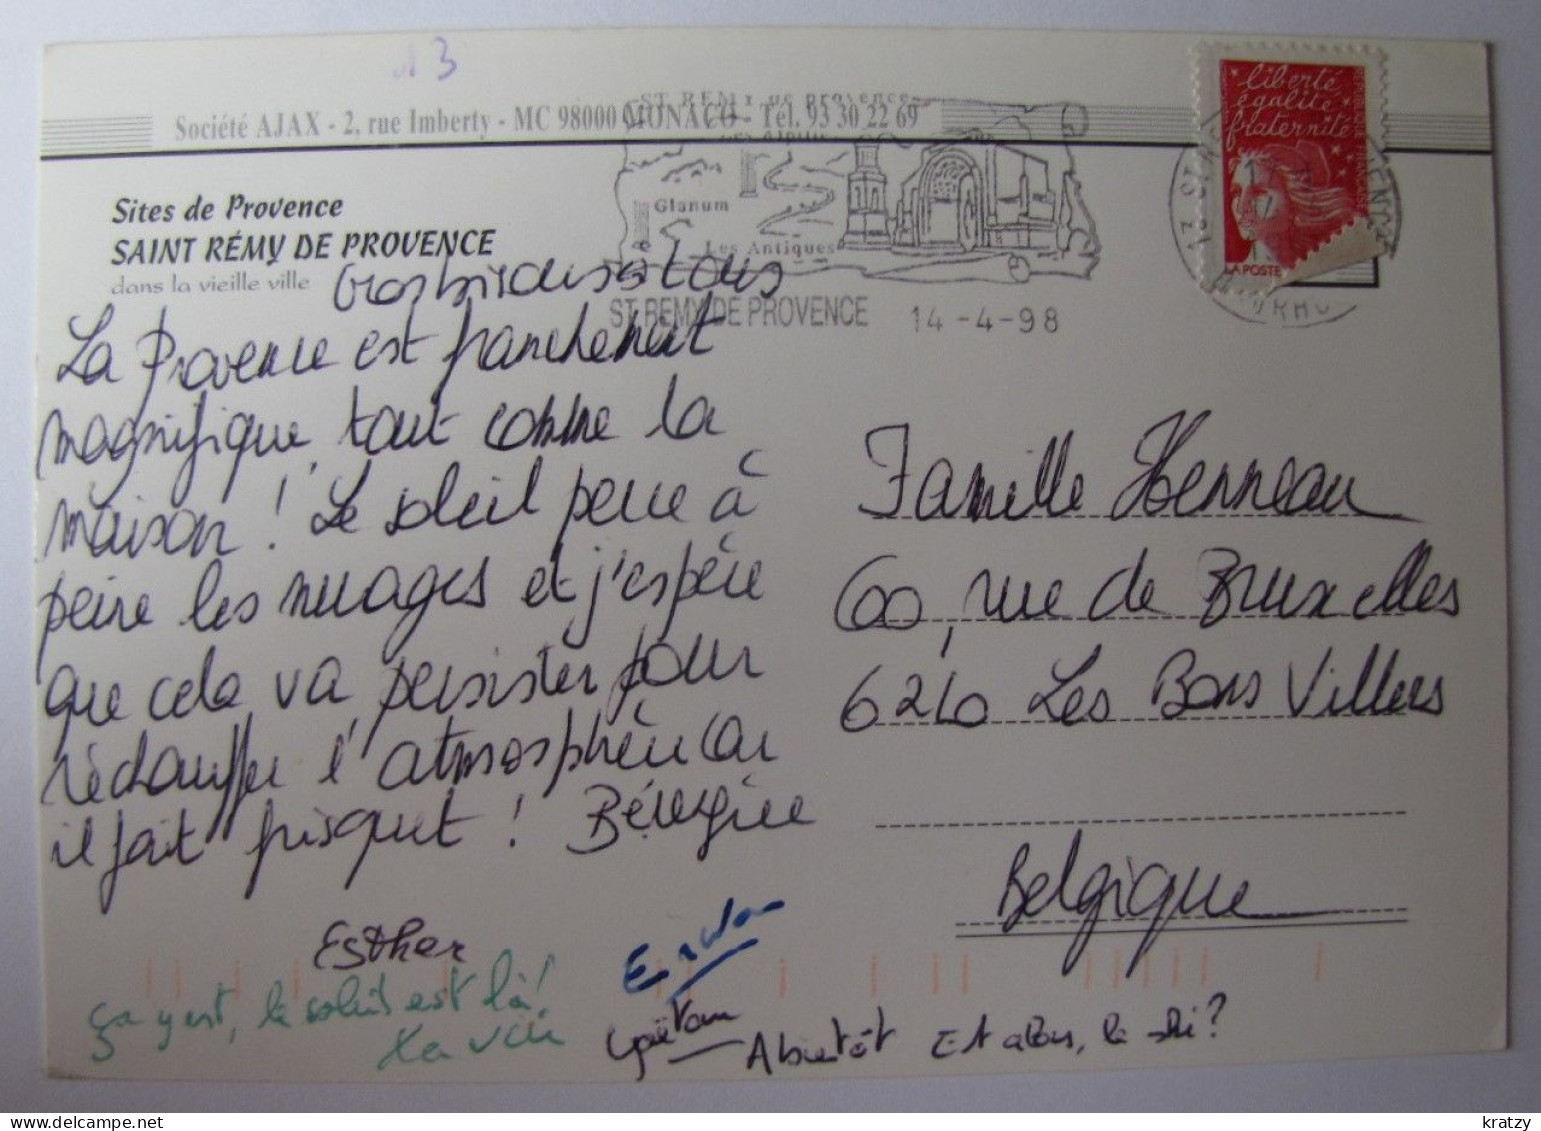 13
Société AJAX - 2, rue Imberty - MC 98000 MONACO - Tél. 93 30 22 69
ST REMY DE Provence
LES ALPILLES
Glanum
Les Antiques
ST REMY DE PROVENCE 14 -4- 98
liberté
égalité
fraternité
LA POSTE
Sites de Provence
SAINT RÉMY DE PROVENCE
dans la vieille ville
Gros bisous à tous
La Provence est franchement
magnifique, tout comme la
maison ! Le soleil perce à
peine les nuages et j'espère
que cela va persister pour
réchauffer l'atmosphère car
il fait frisquet ! Bérengère
Esther
Erwan
ça y est, le soleil est là!
Xavier
Gaëtan
Abientôt Et alors, le ski?
Famille Henneau
60, rue de Bruxelles
6210 Les Bons Villers
Belgique
kratzy